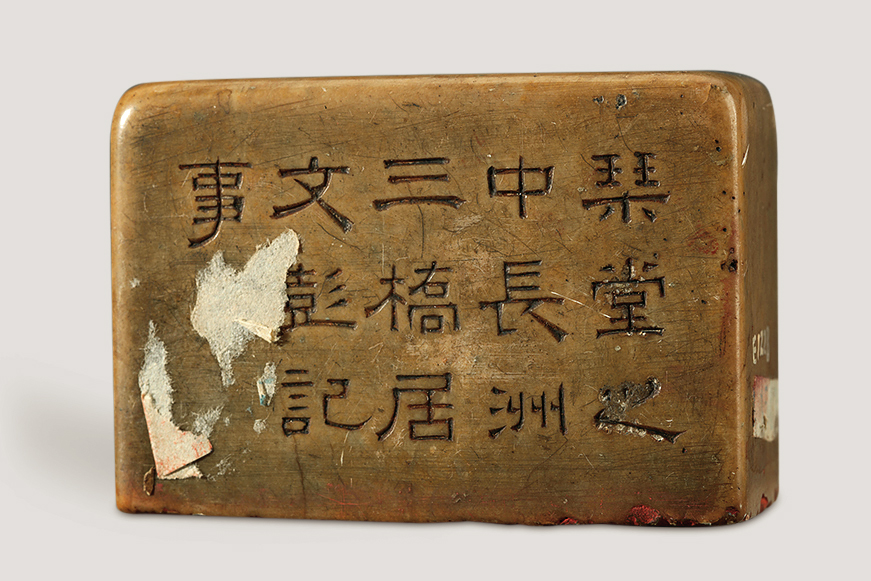 琹堂之
中長洲
三橋居
文彭記
事